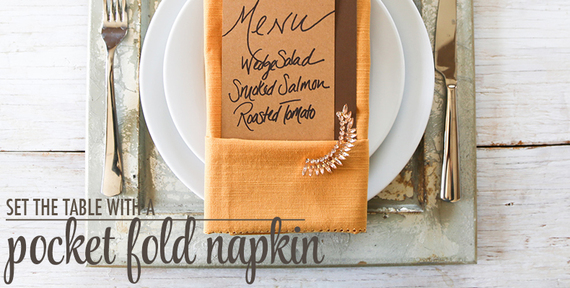 Menu
Wedge Salad
Smoked Salmon
Roasted Tomato
SET THE TABLE WITH A
pocket fold napkin